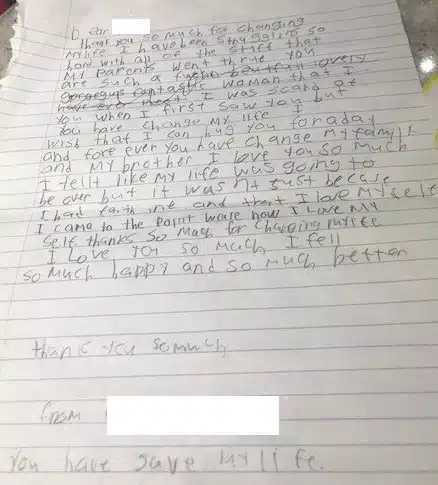 Dear
thank you so much for changing
my life I have been struggaling so
hard with all of the stuff that
my parents went thrue you
are such a lovely
fantastic woman that I
have ever meet I was scard of
you when I first saw you but
you have change my life I
wish that I can hug you for a day
and for ever you have change my family
and my brother I love you so much
I fellt like my life was going to
be over but it was nt just becase
I had faith in me and that I love my self
I came to the point ware how I Love my
self thanks so much for changing my life
I Love you so much I fell
so much happy and so much better
thank you so much
from
You have save my life.